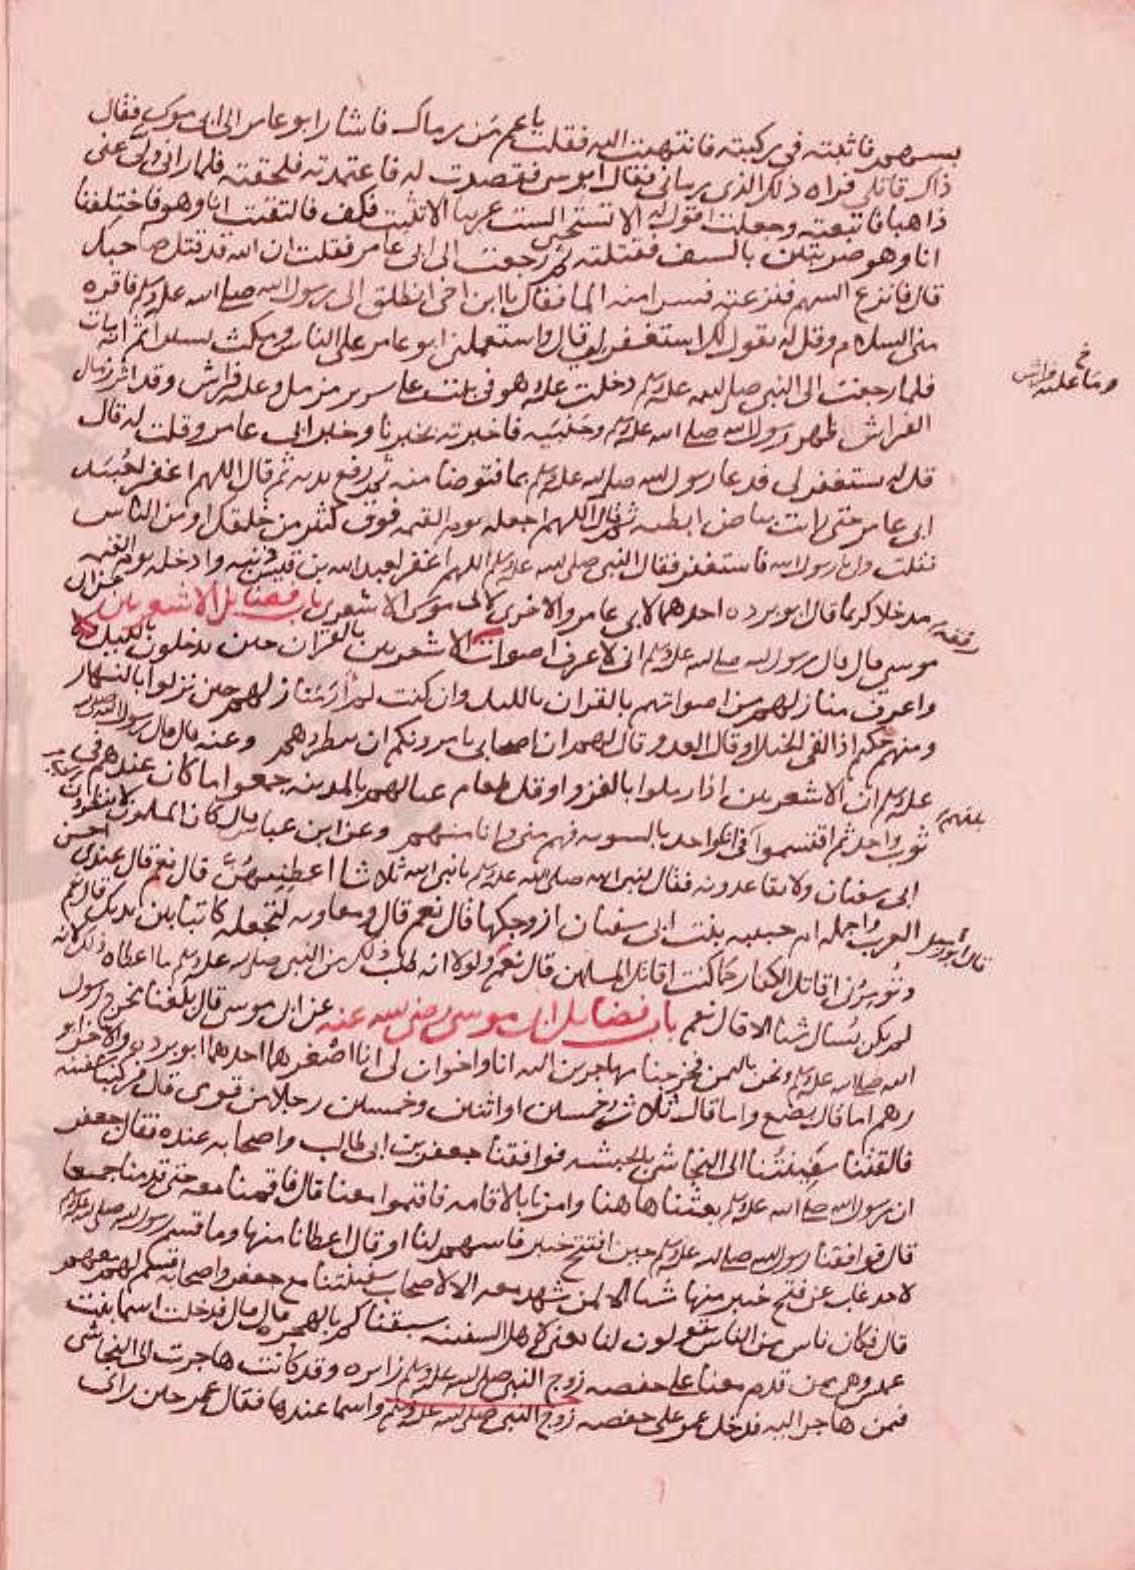 بسهم فاثبته في ركبته فانتهيت اليه فقلت يا عم من رماك فاشار ابو عامر الى ابي موسى فقال
ذاك قاتلي تراه ذلك الذي رماني فقال ابو موسى فقصدت له فاعتمدته فلحقته فلما راني ولى عني
ذاهبا فاتبعته وجعلت اقول له الا تستحي الست عربيا الا تثبت فكف فالتقيت انا وهو فاختلفنا
انا وهو ضربتين بالسيف فقتلته ثم رجعت الى ابي عامر فقلت ان الله قد قتل صاحبك
قال فانزع السهم فنزعته فنزا منه الما فقال يا ابن اخي انطلق الى رسول الله صلى الله عليه وسلم فاقره
مني السلام وقل له يقول لك استغفر لي قال واستعملني ابو عامر على الناس ومكث يسيرا ثم انه مات
فلما رجعت الى النبي صلى الله عليه وسلم دخلت عليه وهو في بيت على سرير مزمل وعليه فراش وقد اثر رمال
وما عليه فراش
الفراش ظهر رسول الله صلى الله عليه وسلم وجنبيه فاخبرته بخبرنا وخبر ابي عامر وقلت له قال
قل له يستغفر لي فدعا رسول الله صلى الله عليه وسلم بما فتوضا منه ثم رفع يديه ثم قال اللهم اغفر لعبيد
ابي عامر حتى رايت بياض ابطيه ثم قال اللهم اجعله يوم القيمه فوق كثير من خلقك او من الناس
فقلت ولي يا رسول الله فاستغفر فقال النبي صلى الله عليه وسلم اللهم اغفر لعبد الله بن قيس ذنبه وادخله يوم القيمه
مدخلا كريما قال ابو برده احدهما لابي عامر والاخرى لابي موسى الاشعري باب فضايل الاشعريين عن ابي
موسى قال قال رسول الله صلى الله عليه وسلم اني لاعرف اصوات رفقه الاشعريين بالقران حين يدخلون بالليل
واعرف منازلهم من اصواتهم بالقران بالليل وان كنت لم ار منازلهم حين نزلوا بالنهار
ومنهم حكيم اذا لقي الخيل او قال العدو قال لهم ان اصحابي يامرونكم ان تنظروهم وعنه قال قال رسول الله صلى الله
عليه وسلم ان الاشعريين اذا ارملوا بالغزو او قل طعام عيالهم بالمدينه جمعوا ما كان عندهم في
ثوب واحد ثم اقتسموا بينهم في انا واحد بالسويه فهم مني وانا منهم وعن ابن عباس قال كان المسلمون لا ينظرون الى
ابي سفيان ولا يقاعدونه فقال لنبي الله صلى الله عليه وسلم يا نبي الله ثلاثا اعطنيهن قال نعم قال عندي احسن
العرب واجمله ام حبيبه بنت ابي سفيان ازوجكها قال نعم قال ومعاويه تجعله كاتبا بين يديك قال نعم
قال وتؤمرني اقاتل الكفار كما كنت اقاتل المسلمين قال نعم قال ابو زميل ولولا انه طلب ذلك من النبي صلى الله عليه وسلم ما اعطاه ذلك لانه
لم يكن يسال شيا الا قال نعم باب فضايل ابي موسى رضي الله عنه عن ابي موسى قال بلغنا مخرج رسول
الله صلى الله عليه وسلم ونحن باليمن فخرجنا مهاجرين اليه انا واخوان لي انا اصغرهما احدهما ابو برده والاخر ابو
رهم اما قال بضع واما قال ثلاث وخمسين او اثنين وخمسين رجلا من قومي قال فركبنا سفينه
فالقتنا سفينتنا الى النجاشي بالحبشه فوافقنا جعفر بن ابي طالب واصحابه عنده فقال جعفر
ان رسول الله صلى الله عليه وسلم بعثنا هاهنا وامرنا بالاقامه فاقيموا معنا قال فاقمنا معه حتى قدمنا جميعا
قال فوافقنا رسول الله صلى الله عليه وسلم حين افتتح خيبر فاسهم لنا او قال اعطانا منها وما قسم رسول الله صلى الله عليه وسلم
لاحد غاب عن فتح خيبر منها شيا الا لمن شهد معه الا لاصحاب سفينتنا مع جعفر واصحابه قسم لهم معهم
قال فكان ناس من الناس يقولون لنا يعني لاهل السفينه سبقناكم بالهجره قال قال فدخلت اسما بنت
عميس وهي ممن قدم معنا على حفصه زوج النبي صلى الله عليه وسلم زايره وقد كانت هاجرت الى النجاشي
فمن هاجر اليه فدخل عمر على حفصه زوج النبي صلى الله عليه وسلم واسما عندها فقال عمر حين راى